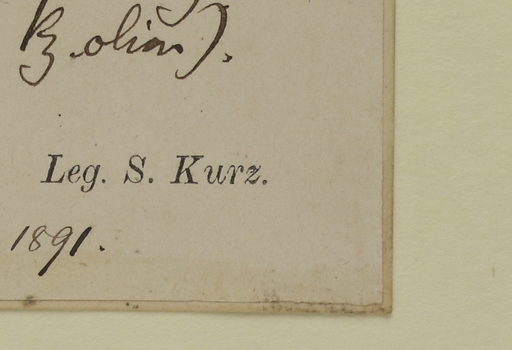 olim).
Leg. S. Kurz.
1891.